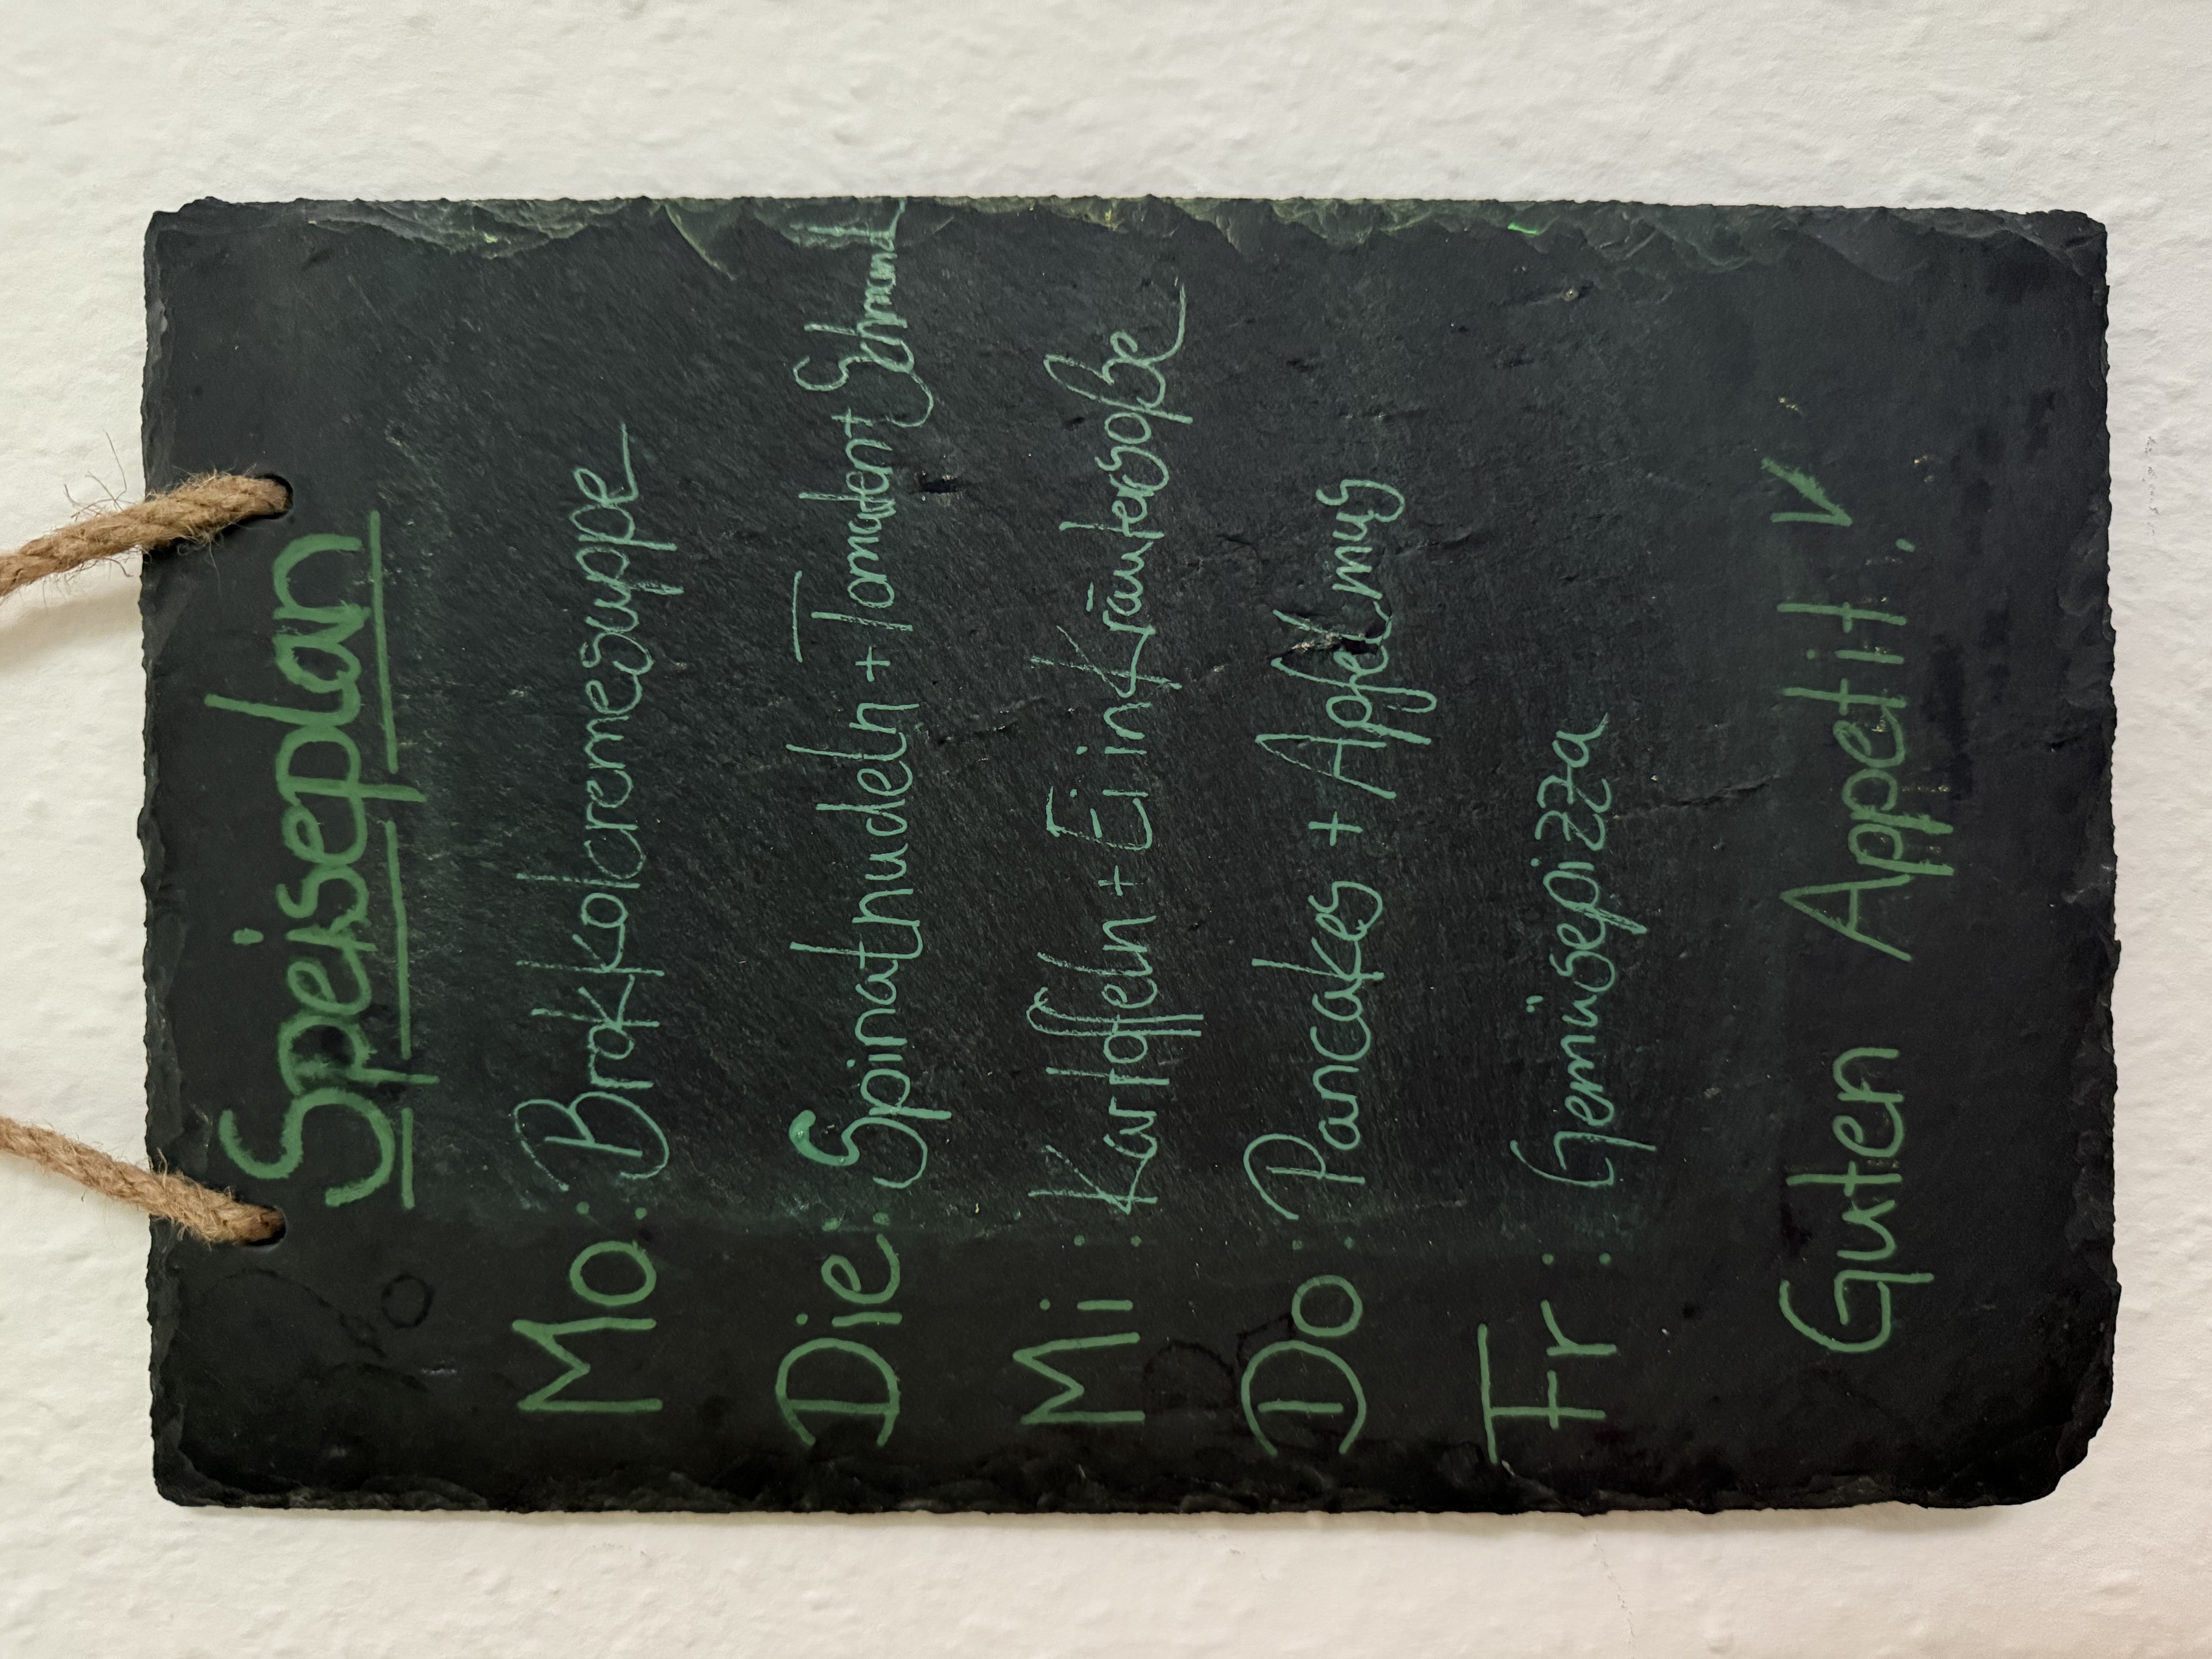 Speiseplan
Mo: Brokkolcremesuppe
Die: Spinatnudeln + Tomaten + Schmand
Mi: Kartoffeln + Ei in Kräutersoße
Do: Pancakes + Apfelmus
Fr: Gemüsepizza
Guten Appetit!